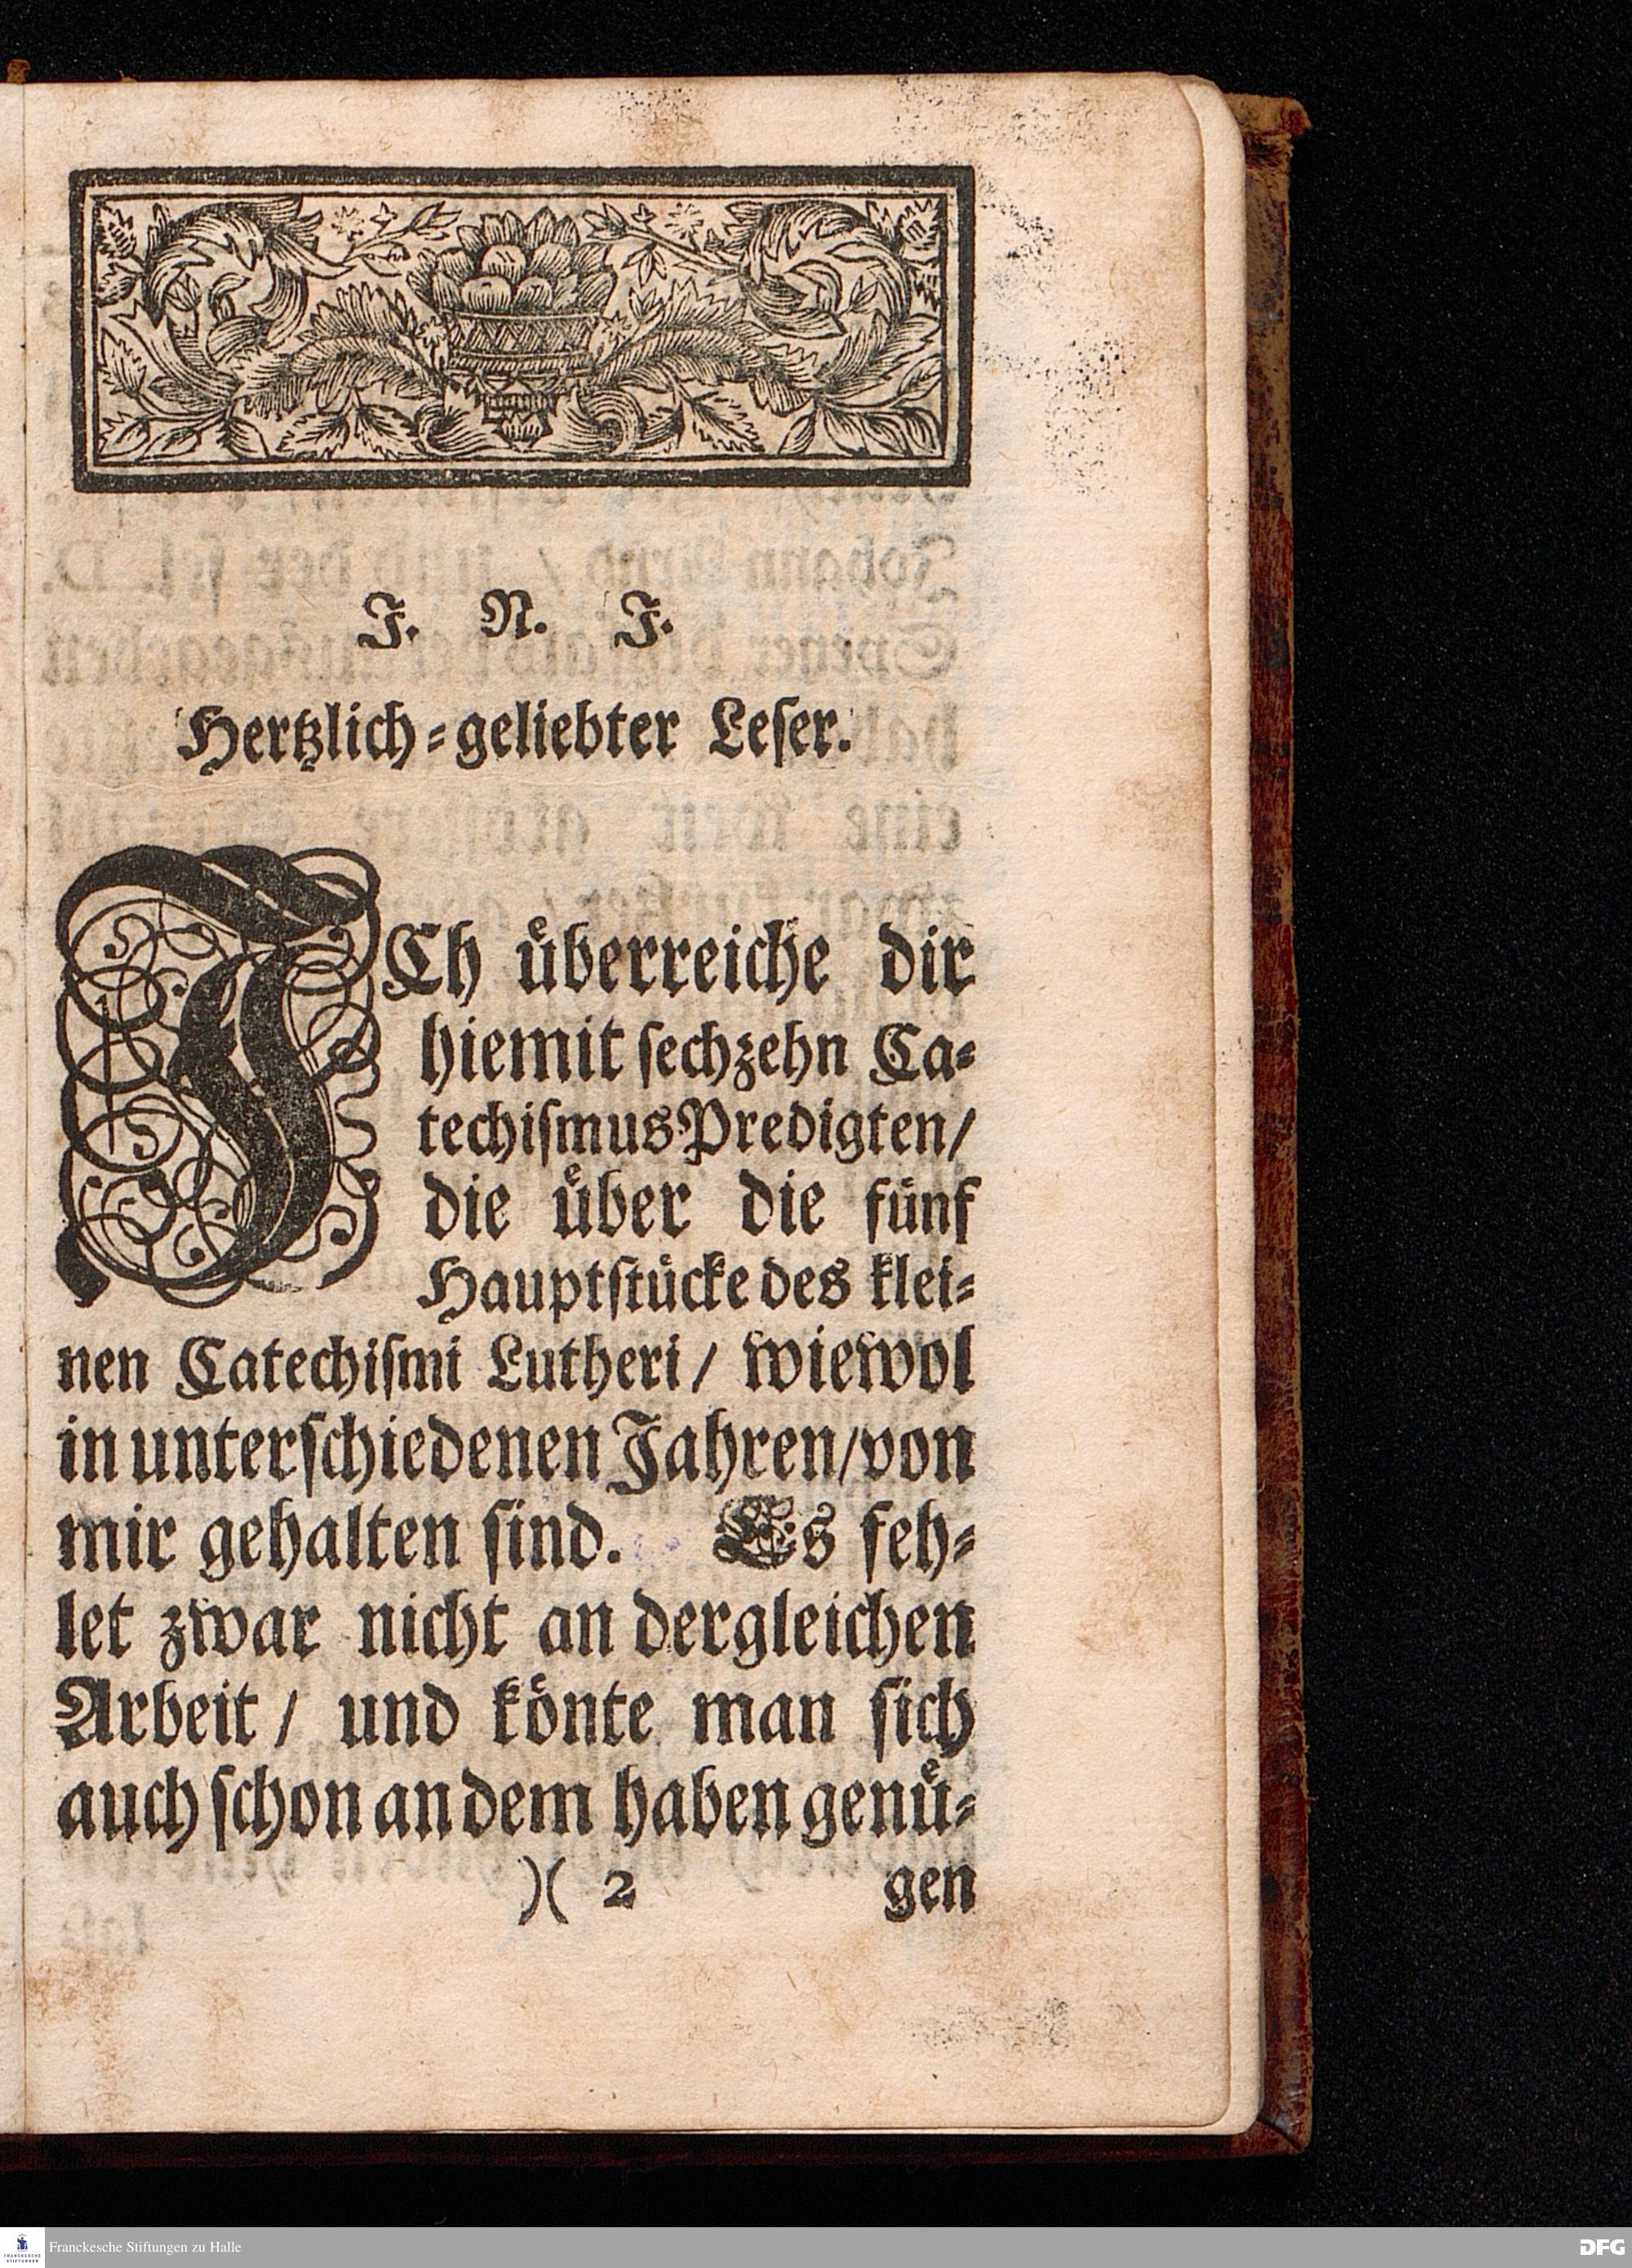 J. N. J.
Hertzlich⸗geliebter Leſer.
JCh uͤberreiche dir
hiemit ſechzehn Ca⸗
techiſmus Predigten/
die uͤber die fuͤnf
Hauptſtuͤcke des klei⸗
nen Catechiſmi Lutheri/ wiewol
in unterſchiedenen Jahren/von
mir gehalten ſind. Es feh⸗
let zwar nicht an dergleichen
Arbeit/ und koͤnte man ſich
auch ſchon an dem haben genuͤ⸗
)( 2 gen
FRANCKESCHE STIFTUNGEN
Franckesche Stiftungen zu Halle
DFG